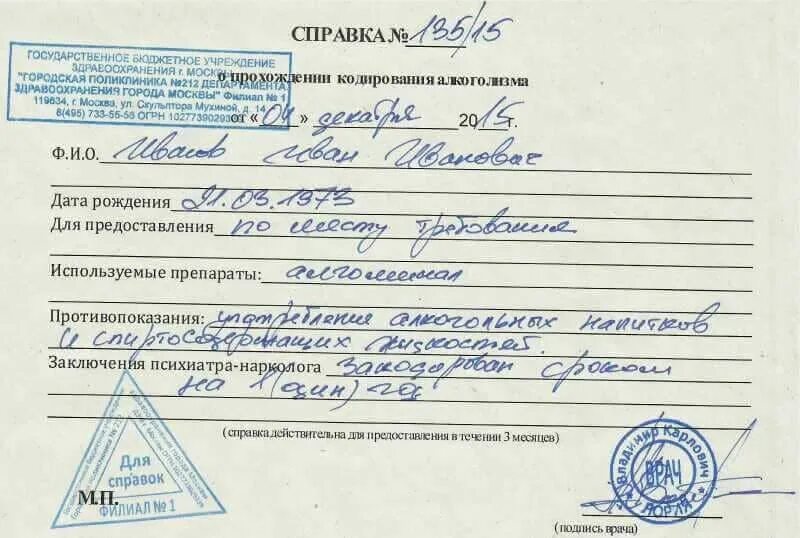 СПРАВКА № 135/15
ГОСУДАРСТВЕННОЕ БЮДЖЕТНОЕ УЧРЕЖДЕНИЕ
ЗДРАВООХРАНЕНИЯ г. МОСКВЫ
"ГОРОДСКАЯ ПОЛИКЛИНИКА №212 ДЕПАРТАМЕНТА
ЗДРАВООХРАНЕНИЯ ГОРОДА МОСКВЫ" Филиал № 1
119634, г. Москва, ул. Скульптора Мухиной, д. 14
8(495) 733-55-58 ОГРН
о прохождении кодирования алкоголизма
от « 04 » декабря 2015 г.
Ф.И.О. Иванов Иван Иванович
Дата рождения 21.03.1973
Для предоставления по месту требования
Используемые препараты: алгоминал
Противопоказания: употребление алкогольных напитков
и спиртосодержащих жидкостей.
Заключения психиатра-нарколога Закодирован сроком
на 1 (один) год
(справка действительна для предоставления в течении 3 месяцев)
Для
справок
ФИЛИАЛ № 1
М.П.
Владимир Карлович
ВРАЧ
(подпись врача)